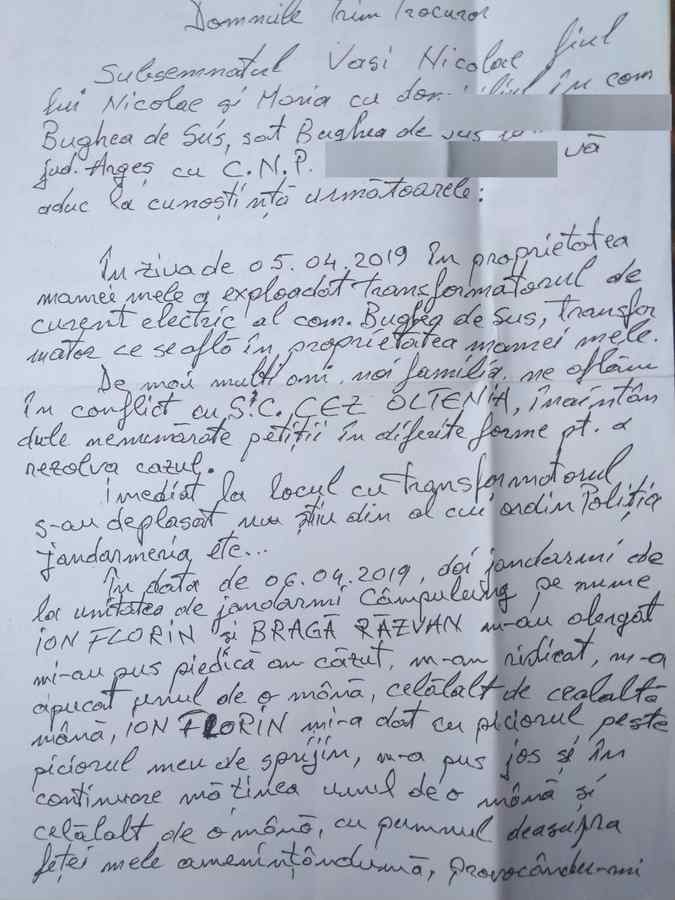 Domnule Prim Procuror
Subsemnatul Vasi Nicolae fiul
lui Nicolae și Maria cu domiciliul în com
Bughea de Sus, sat Bughea de Sus
jud. Argeș cu C.N.P. vă
aduc la cunoștință următoarele:
În ziua de 05.04.2019 în proprietatea
mamei mele a exploadat transformatorul de
curent electric al com. Bughea de Sus, transfor
mator ce se află în proprietatea mamei mele.
De mai mulți ani, noi familia, ne aflăm
în conflict cu S.C. CEZ OLTENIA, înaintân
dule nenumărate petiții în diferite forme pt. a
rezolva cazul.
Imediat la locul cu transformatorul
s-au deplasat nu știu din al cui ordin Poliția
jandarmeria, etc...
În data de 06.04.2019, doi jandarmi de
la unitatea de jandarmi Câmpulung pe nume
ION FLORIN și BRAGĂ RĂZVAN m-au alergat
mi-au pus piedică am căzut, m-au ridicat, m-a
apucat unul de o mână, celălalt de cealaltă
mână, ION FLORIN mi-a dat cu piciorul peste
piciorul meu de sprijin, m-a pus jos și în
continuare mă ținea unul de o mână și
celălalt de o mână, cu pumnul deasupra
feței mele amenințândumă, provocându-mi